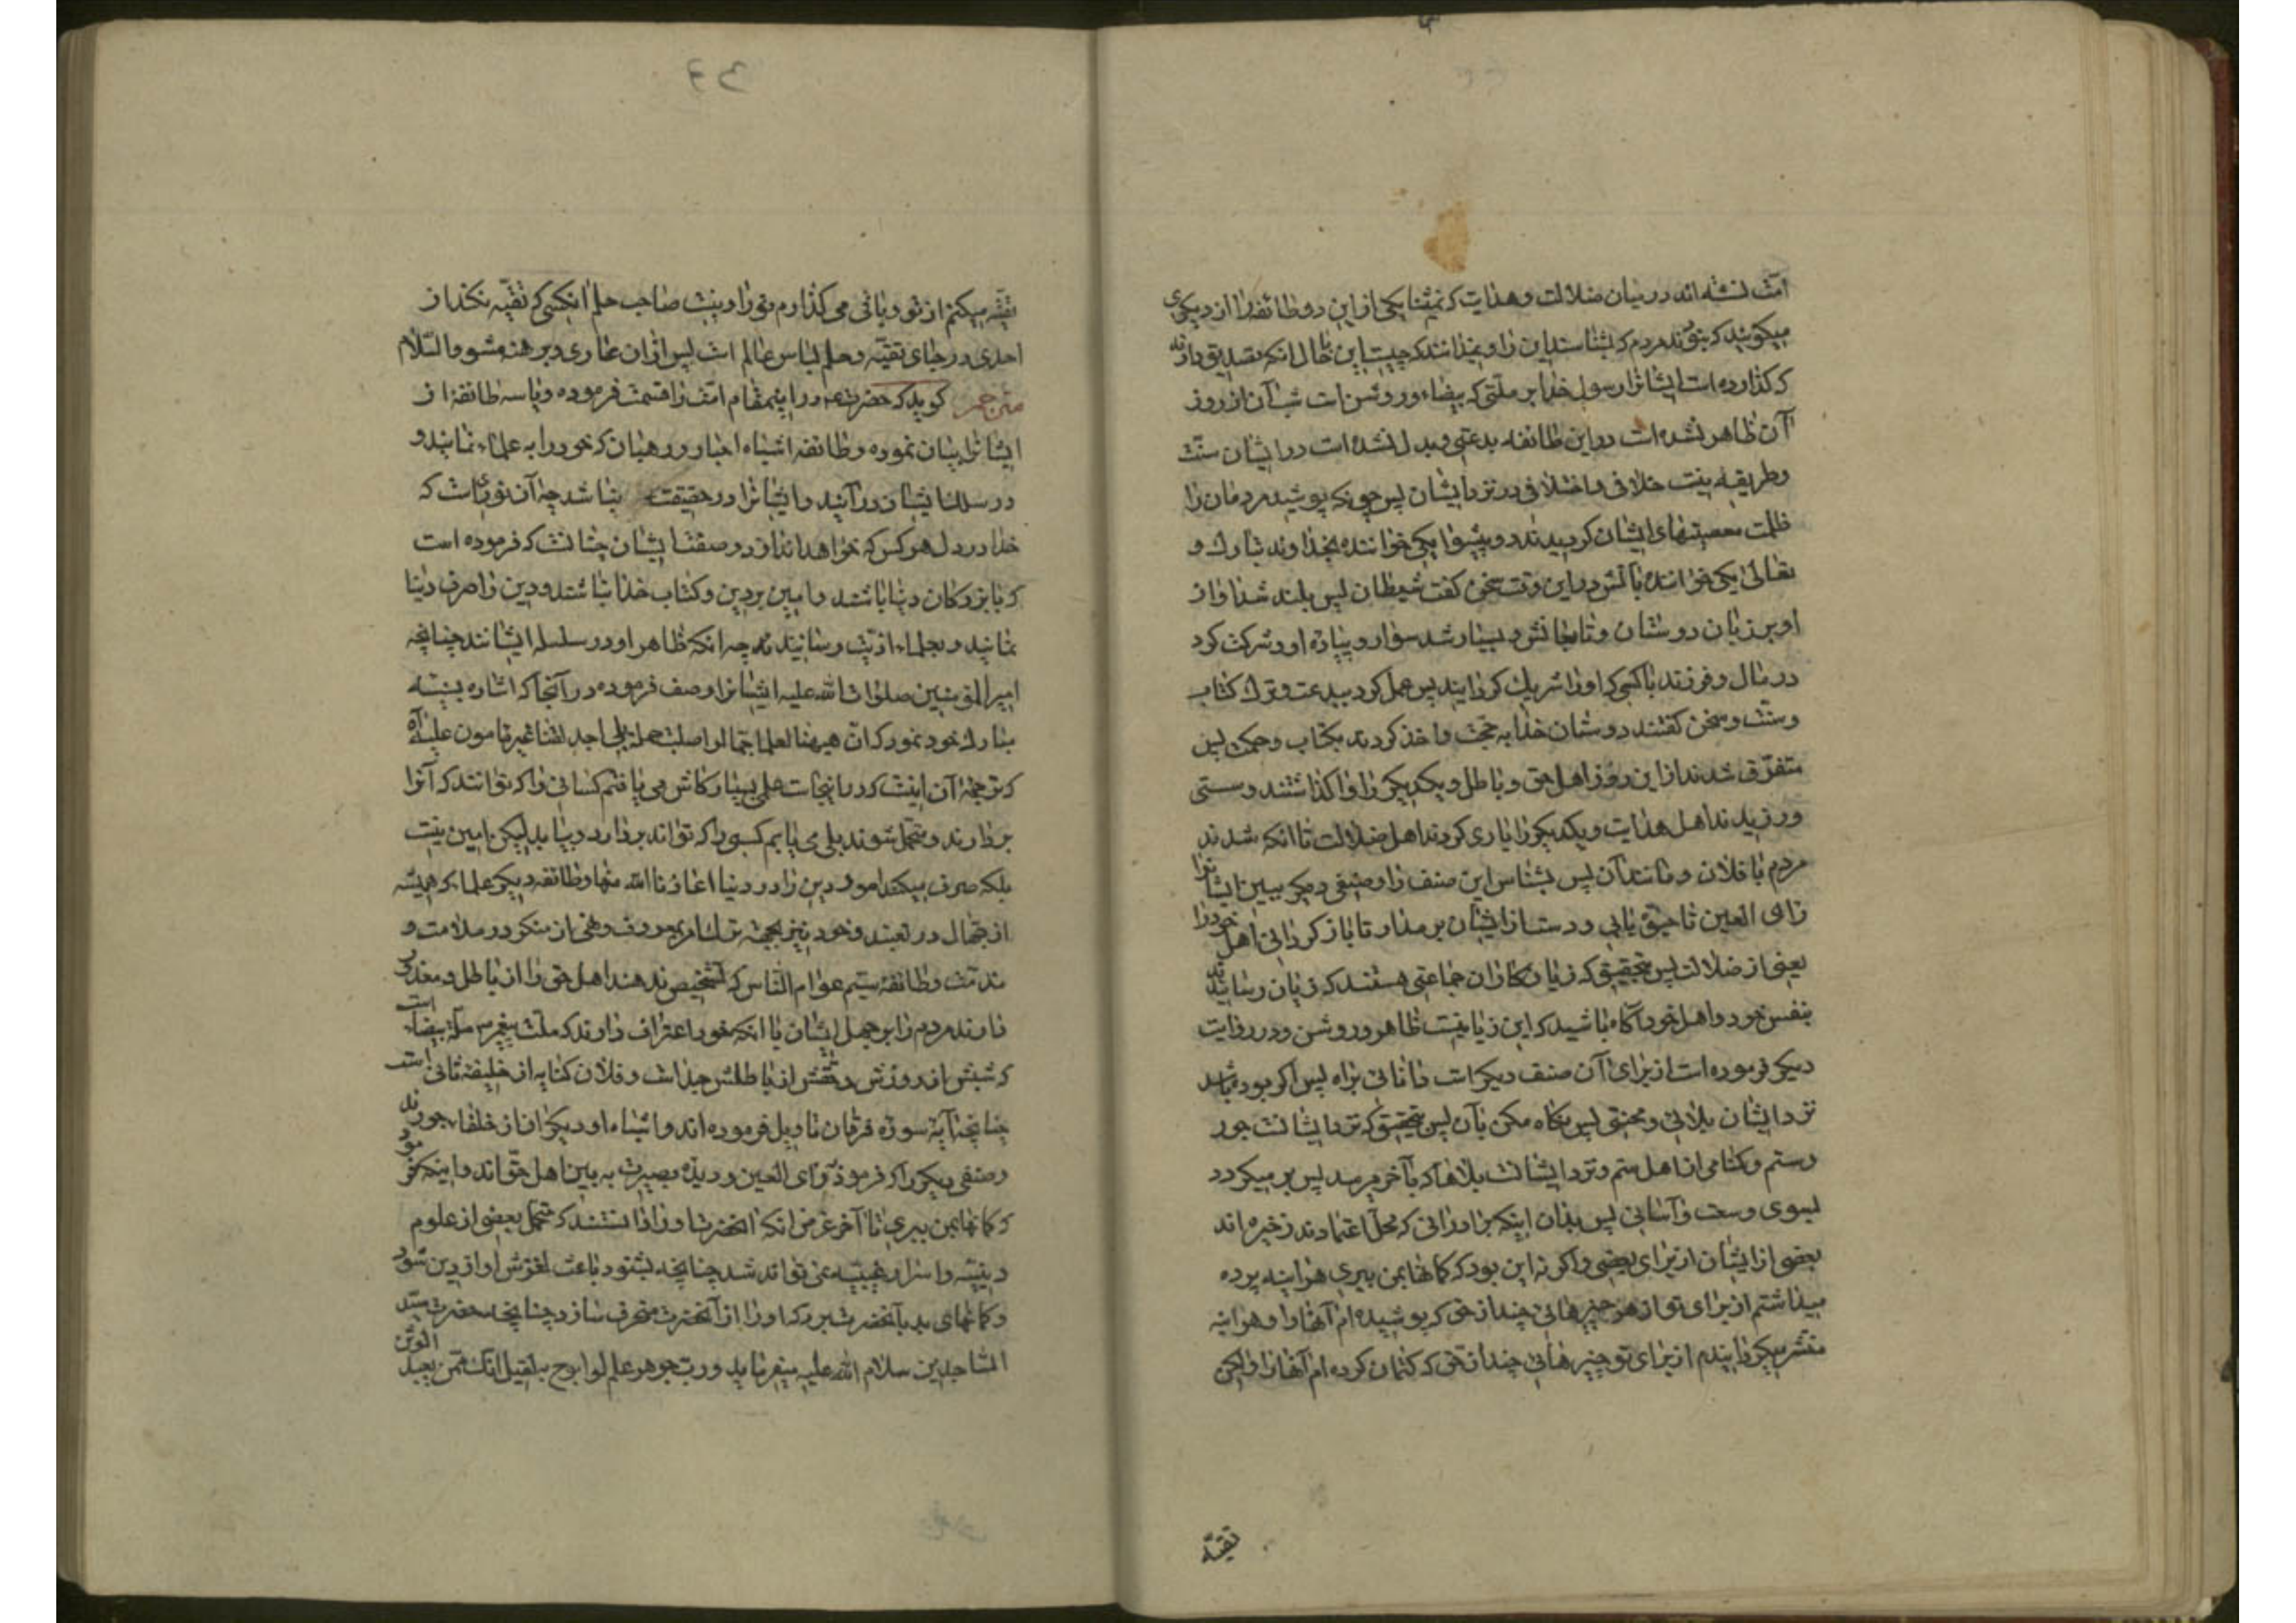 امت نشسته‌اند در میان ضلالت و هدایت که نمیشناسد یکی از این دو طائفه را از دیگری
میگویند که نبودند مردم که بشناسند این را و نمیدانند که چیست این حال انکه تصدیق دارند
که گذارده است ایشانرا رسول خدا بر ملّتی که بیضاء و روشن است شب آن از روز
آن ظاهر نشده است در این طائفه بدعتی و مبدل نشده است در ایشان سنّت
و طریقه نیست خلافی و اختلافی در نزد ایشان پس چونکه پوشید مردمان را
ظلمت معصیتهای ایشان گردیدند دو پیشوا یکی خواننده بخداوند تبارک و
تعالی یکی خواننده بآتش در این وقت سخن گفت شیطان پس بلند شد آواز
او بر زبان دوستان و تابعانش و بسیار شد سوار و پیاده او و شرکت کرد
در مال و فرزند با کسی که او را شریک گردانید پس عمل کرد ببدعت و ترک کتاب
و سنّت و سخن گفتند دوستان خدا به حجّت و اخذ کردند بکتاب و حکمت پس
متفرّق شدند از این روز اهل حق و باطل و یکدیگر را واگذاشتند و سستی
ورزیدند اهل هدایت و یکدیگر را یاری کردند اهل ضلالت تا آنکه شدند
مردم با فلان و مانند آن پس بشناس این صنف را و صنفی دیگر ببین ایشانرا
رای العین تا حق یابی و دست از ایشان بر مدار تا باز گردانی اهل خود را
یعنی از ضلالت پس بتحقیق که زیان‌کاران جماعتی هستند که زیان رسانیدند
بنفس خود و اهل خود آگاه باشید که این زیانیست ظاهر و روشن و در روایت
دیگر فرموده است از برای آن صنف دیگر است دانائی براه پس اگر بوده باشد
نزد ایشان بلائی و محنتی پس نگاه مکن بآن پس بتحقیق که نزد ایشانست جور
و ستم و گمنامی از اهل ستم و نزد ایشانست بلاها که بآخر میرسد پس بر میگردد
بسوی وسعت و آسانی پس بدان اینکه برادرانی که محلّ اعتمادند ذخیره‌اند
بعضی از ایشان از برای بعضی و اگر نه این بود که گمانها بمن ببری هر اینه پرده
میداشتم از برای تو از هر چیزهائی چند از حق که پوشیده‌ام آنها را و هر اینه
منتشر میگردانیدم از برای تو چیزهائی چند از حق که کتمان کرده‌ام آنها را ولیکن
تقیّه
تقیّه میکنم از تو و باقی می‌گذارم تو را و نیست صاحب حلم آنکسی که تقیّه نکند از
احدی در جای تقیّه و حلم لباس عالم است پس از آن عاری و برهنه مشو والسّلام
مترجم گوید که حضرت ع در اینمقام امّت را قسمت فرموده و با سه طائفه از
ایشانرا بیان نموده و طائفه اشباه احبار و رهبان که خود را به علماء نمایند و
در سلک ایشان در آیند و ایشانرا در حقیقت نباشد چه آن نوریست که
خدا در دل هر کس که خواهد اندازد و صفت ایشان چنانست که فرموده است
که با بزرگان دنیا باشند و امین بر دین و کتاب خدا نباشند و دین را صرف دنیا
نمایند و بعلماء اذیّت رسانیدند چه انکه ظاهر او در سلسله ایشانند چنانچه
امیر المؤمنین صلوات الله علیه ایشانرا وصف فرموده در آنجا که اشاره بسینه
مبارک خود نمود که انّ هیهنا لعلما جمّا لو اصبت حملة بلی اجد لقنا غیر مامون علیه آه
که ترجمهٔ آن اینست که در اینجاست علمی بسیار کاش می یافتم کسانی را که توانند که آنرا
بردارند و متحمّل شوند بلی می یابم کسی را که تواند بردارد و بیابد لیکن امین نیست
بلکه صرف میکند امور دین را در دنیا اعاذنا الله منها و طائفه دیگر علما که همیشه
از جهّال در تعبند و خود نیز بجهت ترک امر بمعروف و نهی از منکر در ملامت و
مذمّت و طائفه سیّم عوام الناس که تشخیص ندهند اهل حق را از باطل و معذور
دارند مردم را بر جهل ایشان با انکه خود اعتراف دارند که ملّت پیغمبر ص ملّة بیضاء است
که شبش از روزش و حقّش از باطلش جداست و فلان کنایه از خلیفه ثانی است
چنانچه آیه سوره فرقان تاویل فرموده‌اند و اشباه او دیگران از خلفاء جورند
و صنفی دیگر را که فرمود رای العین و دیدهٔ بصیرت به بین اهل حقّ‌اند و اینکه فرمود
که گمانها بمن ببری تا آخر غرض آنکه آنحضرت او را دانستند که متحمّل بعضی از علوم
دینیّه و اسرار غیبیّه نمی تواند شد چنانچه بشنود باعث لغزش او از دین شود
و گمانهای بد بآنحضرت ببرد که او را از آنحضرت منحرف سازد چنانچه حضرت سیّد
الساجدین سلام الله علیه میفرماید و ربّ جوهر علم لو ابوح به لقیل انت ممّن یعبد الوثن